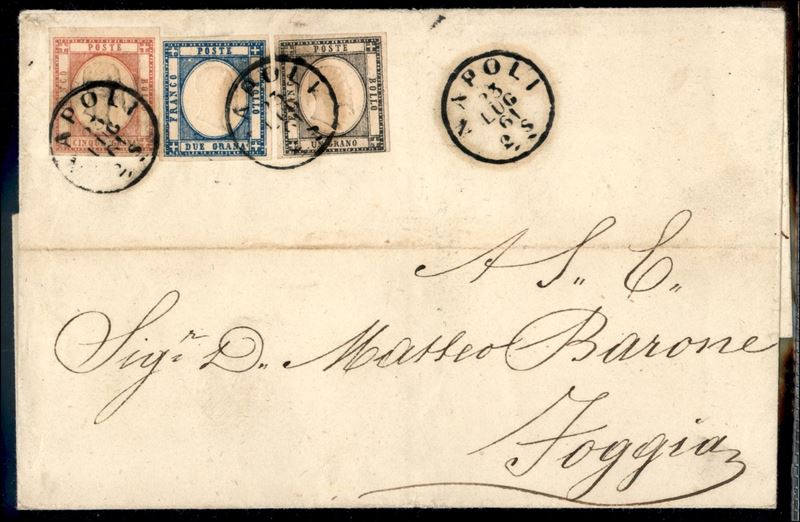 POSTE
FRANCO BOLLO
CINQUE GRANA
POSTE
FRANCO BOLLO
DUE GRANA
POSTE
BOLLO
UN GRANO
NAPOLI
NAPOLI
NAPOLI
13
LUG
61
2. S.
A S,, E,,
Sigr. D,, Matteo Barone
Foggia